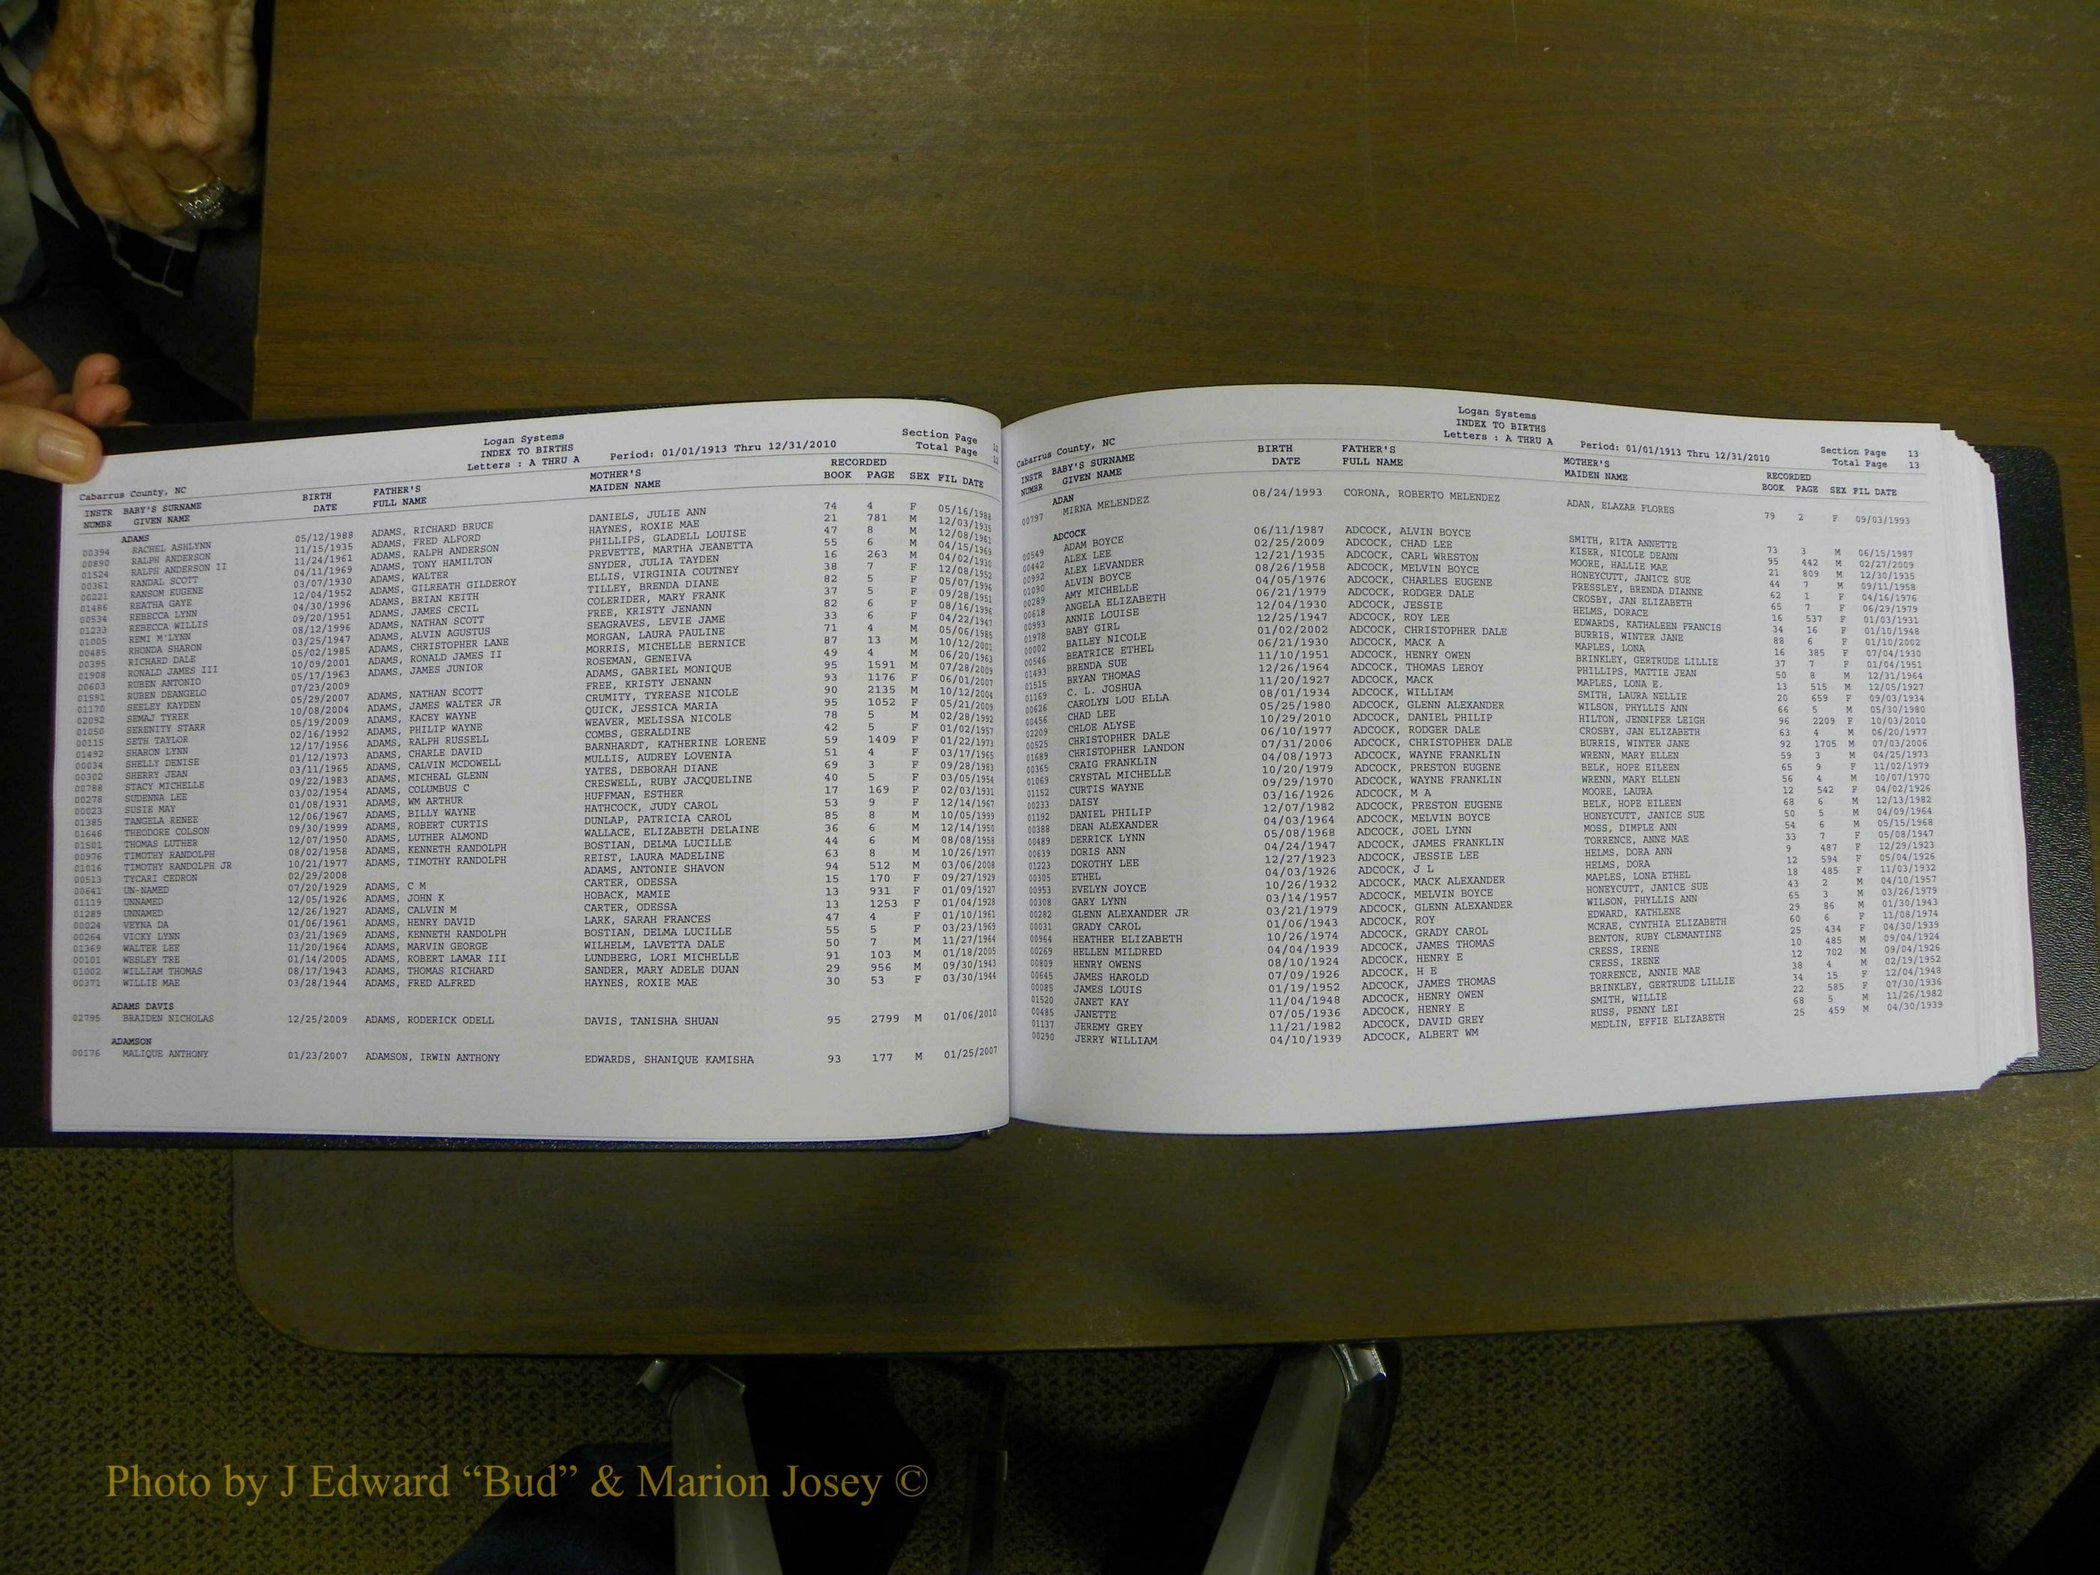 Cabarrus County, NC
Logan Systems
INDEX TO BIRTHS
Letters : A THRU A Period: 01/01/1913 Thru 12/31/2010
Section Page 12
Total Page 12
INSTR BABY'S SURNAME BIRTH FATHER'S MOTHER'S RECORDED
NUMBR GIVEN NAME DATE FULL NAME MAIDEN NAME BOOK PAGE SEX FIL DATE
ADAMS
00394 RACHEL ASHLYNN 05/12/1988 ADAMS, RICHARD BRUCE DANIELS, JULIE ANN 74 4 F 05/16/1988
00890 RALPH ANDERSON 11/15/1935 ADAMS, FRED ALFORD HAYNES, ROXIE MAE 21 781 M 12/03/1935
01524 RALPH ANDERSON II 11/24/1961 ADAMS, RALPH ANDERSON PHILLIPS, GLADELL LOUISE 47 8 M 12/08/1961
00361 RANDAL SCOTT 04/11/1969 ADAMS, TONY HAMILTON PREVETTE, MARTHA JEANETTA 55 6 M 04/15/1969
00221 RANSOM EUGENE 03/07/1930 ADAMS, WALTER SNYDER, JULIA TAYDEN 16 263 M 04/02/1930
01486 REATHA GAYE 12/04/1952 ADAMS, GILREATH GILDEROY ELLIS, VIRGINIA COUTNEY 38 7 F 12/08/1952
00534 REBECCA LYNN 04/30/1996 ADAMS, BRIAN KEITH TILLEY, BRENDA DIANE 82 5 F 05/07/1996
01233 REBECCA WILLIS 09/20/1951 ADAMS, JAMES CECIL COLERIDER, MARY FRANK 37 5 F 09/28/1951
01005 REMI M'LYNN 08/12/1996 ADAMS, NATHAN SCOTT FREE, KRISTY JENANN 82 6 F 08/16/1996
00485 RHONDA SHARON 03/25/1947 ADAMS, ALVIN AGUSTUS SEAGRAVES, LEVIE JAME 33 6 F 04/22/1947
00395 RICHARD DALE 05/02/1985 ADAMS, CHRISTOPHER LANE MORGAN, LAURA PAULINE 71 4 M 05/06/1985
01908 RONALD JAMES III 10/09/2001 ADAMS, RONALD JAMES II MORRIS, MICHELLE BERNICE 87 13 M 10/12/2001
00603 RUBEN ANTONIO 05/17/1963 ADAMS, JAMES JUNIOR ROSEMAN, GENEIVA 49 4 M 06/20/1963
01591 RUBEN DEANGELO 07/23/2009 ADAMS, GABRIEL MONIQUE 95 1591 M 07/28/2009
01170 SEELEY KAYDEN 05/29/2007 ADAMS, NATHAN SCOTT FREE, KRISTY JENANN 93 1176 F 06/01/2007
02092 SEMAJ TYREK 10/08/2004 ADAMS, JAMES WALTER JR CRUMITY, TYREASE NICOLE 90 2135 M 10/12/2004
01050 SERENITY STARR 05/19/2009 ADAMS, KACEY WAYNE QUICK, JESSICA MARIA 95 1052 F 05/21/2009
00115 SETH TAYLOR 02/16/1992 ADAMS, PHILIP WAYNE WEAVER, MELISSA NICOLE 78 5 M 02/28/1992
01492 SHARON LYNN 12/17/1956 ADAMS, RALPH RUSSELL COMBS, GERALDINE 42 5 F 01/02/1957
00034 SHELLY DENISE 01/12/1973 ADAMS, CHARLE DAVID BARNHARDT, KATHERINE LORENE 59 1409 F 01/22/1973
00302 SHERRY JEAN 03/11/1965 ADAMS, CALVIN MCDOWELL MULLIS, AUDREY LOVENIA 51 4 F 03/17/1965
00788 STACY MICHELLE 09/22/1983 ADAMS, MICHEAL GLENN YATES, DEBORAH DIANE 69 3 F 09/28/1983
00278 SUDENNA LEE 03/02/1954 ADAMS, COLUMBUS C CRESWELL, RUBY JACQUELINE 40 5 F 03/05/1954
00023 SUSIE MAY 01/08/1931 ADAMS, WM ARTHUR HUFFMAN, ESTHER 17 169 F 02/03/1931
01385 TANGELA RENEE 12/06/1967 ADAMS, BILLY WAYNE HATHCOCK, JUDY CAROL 53 9 F 12/14/1967
01646 THEODORE COLSON 09/30/1999 ADAMS, ROBERT CURTIS DUNLAP, PATRICIA CAROL 85 8 M 10/05/1999
01501 THOMAS LUTHER 12/07/1950 ADAMS, LUTHER ALMOND WALLACE, ELIZABETH DELAINE 36 6 M 12/14/1950
00976 TIMOTHY RANDOLPH 08/02/1958 ADAMS, KENNETH RANDOLPH BOSTIAN, DELMA LUCILLE 44 6 M 08/08/1958
01016 TIMOTHY RANDOLPH JR 10/21/1977 ADAMS, TIMOTHY RANDOLPH REIST, LAURA MADELINE 63 8 M 10/26/1977
00513 TYCARI CEDRON 02/29/2008 ADAMS, ANTONIE SHAVON 94 512 M 03/06/2008
00641 UN-NAMED 07/20/1929 ADAMS, C M CARTER, ODESSA 15 170 F 09/27/1929
01119 UNNAMED 12/05/1926 ADAMS, JOHN K HOBACK, MAMIE 13 931 F 01/09/1927
01289 UNNAMED 12/26/1927 ADAMS, CALVIN M CARTER, ODESSA 13 1253 F 01/04/1928
00024 VEYNA DA 01/06/1961 ADAMS, HENRY DAVID LARK, SARAH FRANCES 47 4 F 01/10/1961
00264 VICKY LYNN 03/21/1969 ADAMS, KENNETH RANDOLPH BOSTIAN, DELMA LUCILLE 55 5 F 03/23/1969
01369 WALTER LEE 11/20/1964 ADAMS, MARVIN GEORGE WILHELM, LAVETTA DALE 50 7 M 11/27/1964
00101 WESLEY TRE 01/14/2005 ADAMS, ROBERT LAMAR III LUNDBERG, LORI MICHELLE 91 103 M 01/18/2005
01002 WILLIAM THOMAS 08/17/1943 ADAMS, THOMAS RICHARD SANDER, MARY ADELE DUAN 29 956 M 09/30/1943
00371 WILLIE MAE 03/28/1944 ADAMS, FRED ALFRED HAYNES, ROXIE MAE 30 53 F 03/30/1944
ADAMS DAVIS
02795 BRAIDEN NICHOLAS 12/25/2009 ADAMS, RODERICK ODELL DAVIS, TANISHA SHUAN 95 2799 M 01/06/2010
ADAMSON
00176 MALIQUE ANTHONY 01/23/2007 ADAMSON, IRWIN ANTHONY EDWARDS, SHANIQUE KAMISHA 93 177 M 01/25/2007
Cabarrus County, NC
Logan Systems
INDEX TO BIRTHS
Letters : A THRU A Period: 01/01/1913 Thru 12/31/2010
Section Page 13
Total Page 13
INSTR BABY'S SURNAME BIRTH FATHER'S MOTHER'S RECORDED
NUMBR GIVEN NAME DATE FULL NAME MAIDEN NAME BOOK PAGE SEX FIL DATE
ADAN
00797 MIRNA MELENDEZ 08/24/1993 CORONA, ROBERTO MELENDEZ ADAN, ELAZAR FLORES 79 2 F 09/03/1993
ADCOCK
00549 ADAM BOYCE 06/11/1987 ADCOCK, ALVIN BOYCE SMITH, RITA ANNETTE 73 3 M 06/15/1987
00442 ALEX LEE 02/25/2009 ADCOCK, CHAD LEE KISER, NICOLE DEANN 95 442 M 02/27/2009
00992 ALEX LEVANDER 12/21/1935 ADCOCK, CARL WRESTON MOORE, HALLIE MAE 21 809 M 12/30/1935
01090 ALVIN BOYCE 08/26/1958 ADCOCK, MELVIN BOYCE HONEYCUTT, JANICE SUE 44 7 M 09/11/1958
00289 AMY MICHELLE 04/05/1976 ADCOCK, CHARLES EUGENE PRESSLEY, BRENDA DIANNE 62 1 F 04/16/1976
00618 ANGELA ELIZABETH 06/21/1979 ADCOCK, RODGER DALE CROSBY, JAN ELIZABETH 65 7 F 06/29/1979
00993 ANNIE LOUISE 12/04/1930 ADCOCK, JESSIE HELMS, DORACE 16 537 F 01/03/1931
01978 BABY GIRL 12/25/1947 ADCOCK, ROY LEE EDWARDS, KATHALEEN FRANCIS 34 16 F 01/10/1948
00002 BAILEY NICOLE 01/02/2002 ADCOCK, CHRISTOPHER DALE BURRIS, WINTER JANE 88 6 F 01/10/2002
00546 BEATRICE ETHEL 06/21/1930 ADCOCK, MACK A MAPLES, LONA 16 385 F 07/04/1930
01493 BRENDA SUE 11/10/1951 ADCOCK, HENRY OWEN BRINKLEY, GERTRUDE LILLIE 37 7 F 01/04/1951
01515 BRYAN THOMAS 12/26/1964 ADCOCK, THOMAS LEROY PHILLIPS, MATTIE JEAN 50 8 M 12/31/1964
01169 C. L. JOSHUA 11/20/1927 ADCOCK, MACK MAPLES, LONA E. 13 515 M 12/05/1927
00626 CAROLYN LOU ELLA 08/01/1934 ADCOCK, WILLIAM SMITH, LAURA NELLIE 20 659 F 09/03/1934
00456 CHAD LEE 05/25/1980 ADCOCK, GLENN ALEXANDER WILSON, PHYLLIS ANN 66 5 M 05/30/1980
02209 CHLOE ALYSE 10/29/2010 ADCOCK, DANIEL PHILIP HILTON, JENNIFER LEIGH 96 2209 F 10/03/2010
00525 CHRISTOPHER DALE 06/10/1977 ADCOCK, RODGER DALE CROSBY, JAN ELIZABETH 63 4 M 06/20/1977
01689 CHRISTOPHER LANDON 07/31/2006 ADCOCK, CHRISTOPHER DALE BURRIS, WINTER JANE 92 1705 M 07/03/2006
00365 CRAIG FRANKLIN 04/08/1973 ADCOCK, WAYNE FRANKLIN WRENN, MARY ELLEN 59 3 M 04/25/1973
01069 CRYSTAL MICHELLE 10/20/1979 ADCOCK, PRESTON EUGENE BELK, HOPE EILEEN 65 9 F 11/02/1979
01152 CURTIS WAYNE 09/29/1970 ADCOCK, WAYNE FRANKLIN WRENN, MARY ELLEN 56 4 M 10/07/1970
00233 DAISY 03/16/1926 ADCOCK, M A MOORE, LAURA 12 542 F 04/02/1926
01192 DANIEL PHILIP 12/07/1982 ADCOCK, PRESTON EUGENE BELK, HOPE EILEEN 68 6 M 12/13/1982
00388 DEAN ALEXANDER 04/03/1964 ADCOCK, MELVIN BOYCE HONEYCUTT, JANICE SUE 50 5 M 04/09/1964
00489 DERRICK LYNN 05/08/1968 ADCOCK, JOEL LYNN MOSS, DIMPLE ANN 54 6 M 05/15/1968
00639 DORIS ANN 04/24/1947 ADCOCK, JAMES FRANKLIN TORRENCE, ANNE MAE 33 7 F 05/08/1947
01223 DOROTHY LEE 12/27/1923 ADCOCK, JESSIE LEE HELMS, DORA ANN 9 487 F 12/29/1923
00305 ETHEL 04/03/1926 ADCOCK, J L HELMS, DORA 12 594 F 05/04/1926
00953 EVELYN JOYCE 10/26/1932 ADCOCK, MACK ALEXANDER MAPLES, LONA ETHEL 18 485 F 11/03/1932
00308 GARY LYNN 03/14/1957 ADCOCK, MELVIN BOYCE HONEYCUTT, JANICE SUE 43 2 M 04/10/1957
00282 GLENN ALEXANDER JR 03/21/1979 ADCOCK, GLENN ALEXANDER WILSON, PHYLLIS ANN 65 3 M 03/26/1979
00031 GRADY CAROL 01/06/1943 ADCOCK, ROY EDWARD, KATHLENE 29 86 M 01/30/1943
00964 HEATHER ELIZABETH 10/26/1974 ADCOCK, GRADY CAROL MCRAE, CYNTHIA ELIZABETH 60 6 F 11/08/1974
00269 HELLEN MILDRED 04/04/1939 ADCOCK, JAMES THOMAS BENTON, RUBY CLEMANTINE 25 434 F 04/30/1939
00809 HENRY OWENS 08/10/1924 ADCOCK, HENRY E CRESS, IRENE 10 485 M 09/04/1924
00645 JAMES HAROLD 07/09/1926 ADCOCK, H E CRESS, IRENE 12 702 M 09/04/1926
00085 JAMES LOUIS 01/19/1952 ADCOCK, JAMES THOMAS TORRENCE, ANNIE MAE 38 4 M 02/19/1952
01520 JANET KAY 11/04/1948 ADCOCK, HENRY OWEN BRINKLEY, GERTRUDE LILLIE 34 15 F 12/04/1948
00485 JANETTE 07/05/1936 ADCOCK, HENRY E SMITH, WILLIE 22 585 F 07/30/1936
01137 JEREMY GREY 11/21/1982 ADCOCK, DAVID GREY RUSS, PENNY LEI 68 5 M 11/26/1982
00290 JERRY WILLIAM 04/10/1939 ADCOCK, ALBERT WM MEDLIN, EFFIE ELIZABETH 25 459 M 04/30/1939
Photo by J Edward “Bud” & Marion Josey ©